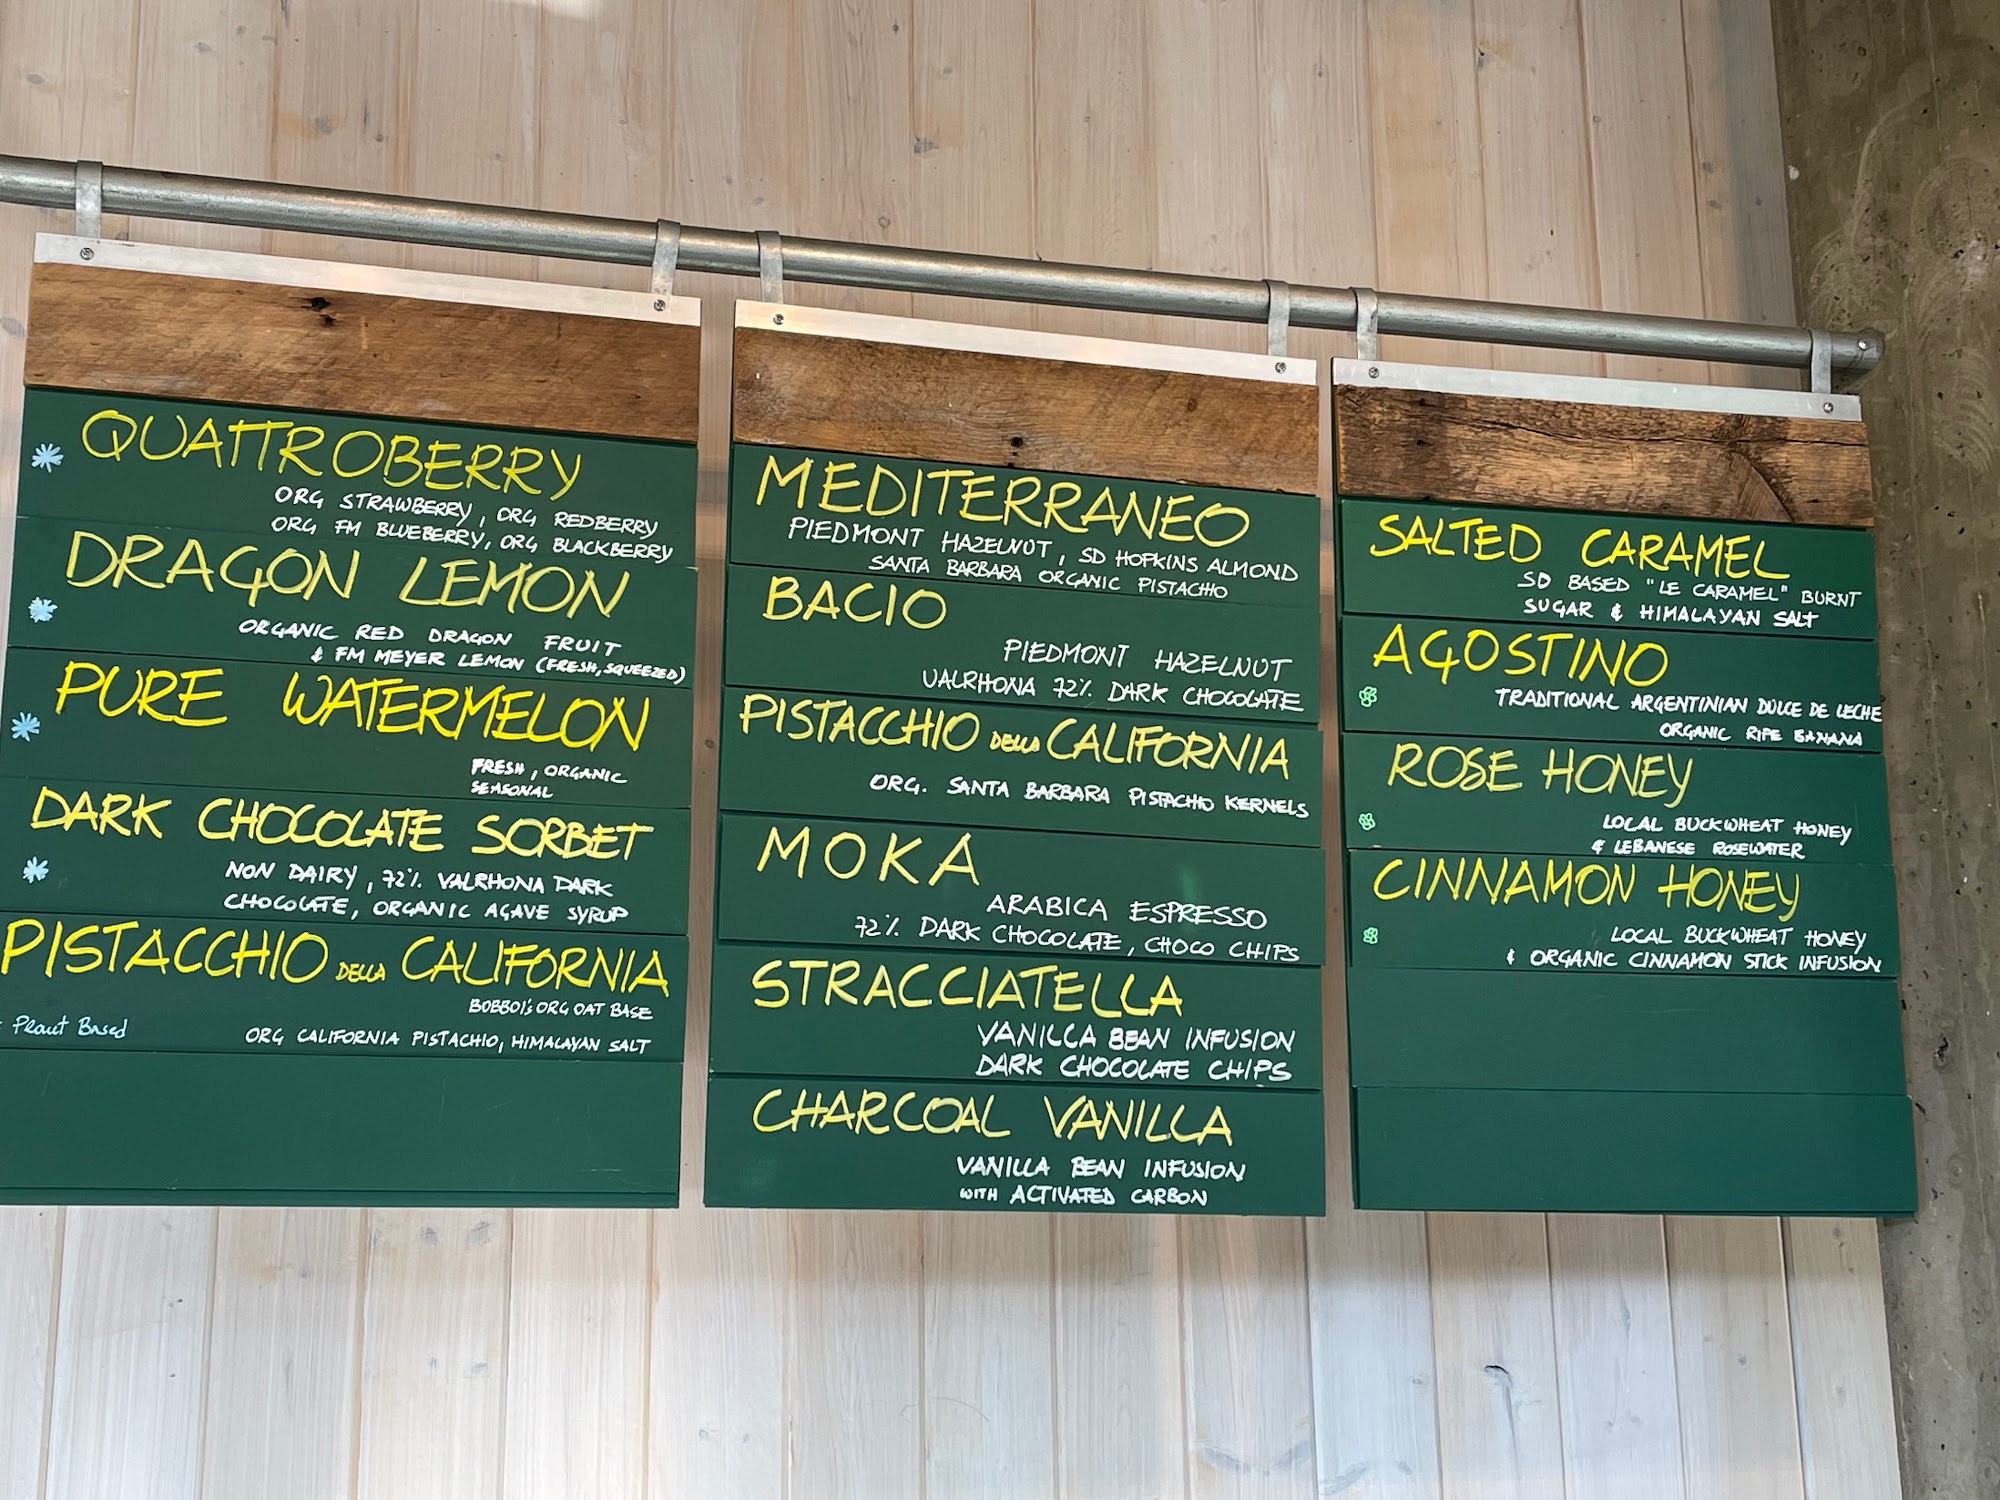 QUATTROBERRY
ORG STRAWBERRY, ORG REDBERRY
ORG FM BLUEBERRY, ORG BLACKBERRY
DRAGON LEMON
ORGANIC RED DRAGON FRUIT
& FM MEYER LEMON (FRESH, SQUEEZED)
PURE WATERMELON
FRESH, ORGANIC
SEASONAL
DARK CHOCOLATE SORBET
NON DAIRY, 72% VALRHONA DARK
CHOCOLATE, ORGANIC AGAVE SYRUP
PISTACCHIO DELLA CALIFORNIA
BOBBOI'S ORG OAT BASE
Plant Based
ORG CALIFORNIA PISTACHIO, HIMALAYAN SALT
MEDITERRANEO
PIEDMONT HAZELNUT, SD HOPKINS ALMOND
SANTA BARBARA ORGANIC PISTACHIO
BACIO
PIEDMONT HAZELNUT
VALRHONA 72% DARK CHOCOLATE
PISTACCHIO DELLA CALIFORNIA
ORG. SANTA BARBARA PISTACHIO KERNELS
MOKA
ARABICA ESPRESSO
72% DARK CHOCOLATE, CHOCO CHIPS
STRACCIATELLA
VANILLA BEAN INFUSION
DARK CHOCOLATE CHIPS
CHARCOAL VANILLA
VANILLA BEAN INFUSION
WITH ACTIVATED CARBON
SALTED CARAMEL
SD BASED "LE CARAMEL" BURNT
SUGAR & HIMALAYAN SALT
AGOSTINO
TRADITIONAL ARGENTINIAN DULCE DE LECHE
ORGANIC RIPE BANANA
ROSE HONEY
LOCAL BUCKWHEAT HONEY
& LEBANESE ROSEWATER
CINNAMON HONEY
LOCAL BUCKWHEAT HONEY
& ORGANIC CINNAMON STICK INFUSION